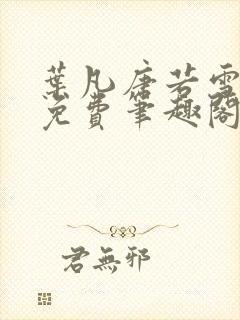 葉凡唐若雪
免費筆趣閣
君無邪